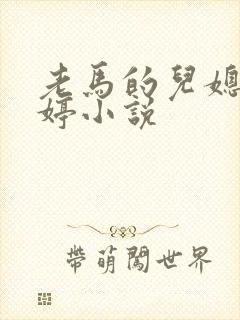 老馬的兒媳
婷小說
帶萌闖世界